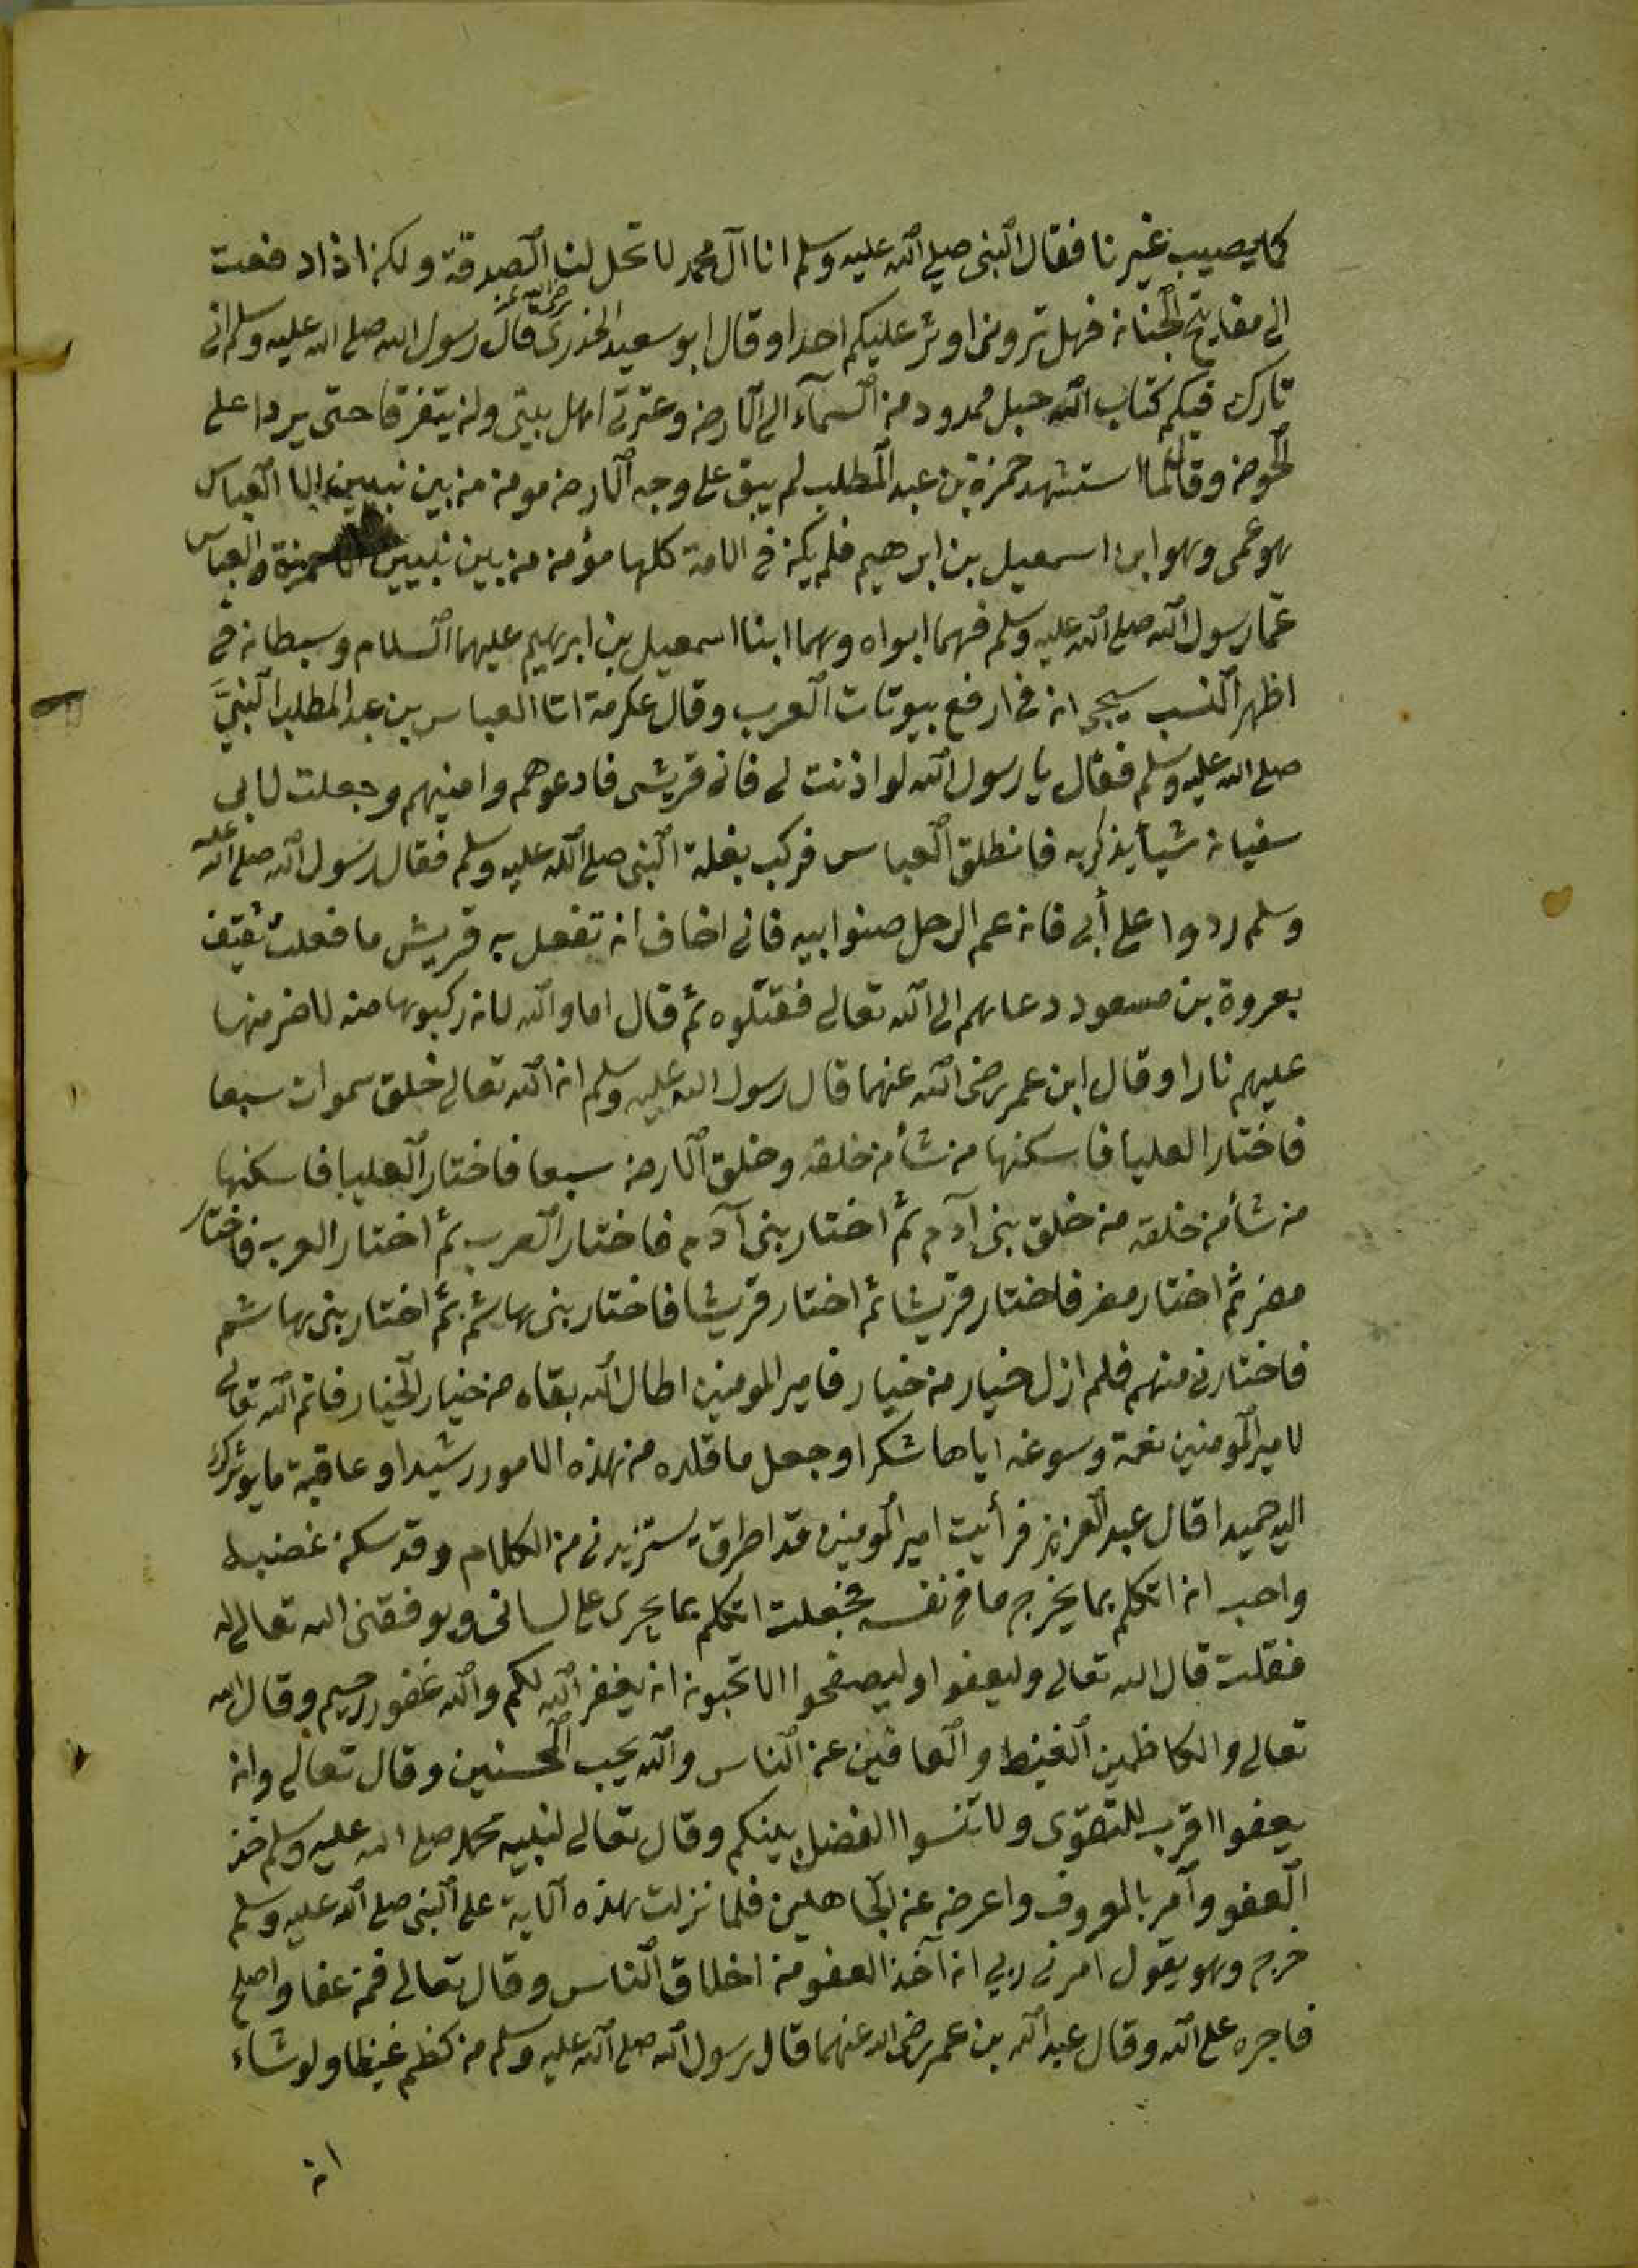 كما يصيب غيرنا فقال النبي صلى الله عليه وسلم انا آل محمد لا تحل لنا الصدقة ولكن اذا دفعت
الى مفاتيح الجنان فهل تروني اوثر عليكم احدا وقال ابو سعيد الخدري رضي الله عنه قال رسول الله صلى الله عليه وسلم اني
تارك فيكم كتاب الله حبل ممدود من السماء الى الارض وعترتي اهل بيتي ولن يتفرقا حتى يردا على
الحوض وقال لما استشهد حمزة بن عبد المطلب لم يبق على وجه الارض مومن من بين نبيين الا العباس
هو عمي وهو ابن اسمعيل بن ابرهيم فلم يكن في الامة كلها مؤمن من بين نبيين الا حمزة والعباس
عما رسول الله صلى الله عليه وسلم فهما ابواه وهما ابنا اسمعيل بن ابرهيم عليهما السلام وسبطان في
اظهر النسب يجريان في ارفع بيوتات العرب وقال عكرمة اتا العباس بن عبد المطلب النبيّ
صلى الله عليه وسلم فقال يا رسول الله لو اذنت لي فاتي قريش فادعوهم وامنيهم وجعلت لابي
سفيان شيأ يذكر به فانطلق العباس فركب بغلة النبي صلى الله عليه وسلم فقال رسول الله صلى الله عليه
وسلم ردوا على أبي فان عم الرجل صنو ابيه فاني اخاف ان تفعل به قريش ما فعلت ثقيف
بعروة بن مسعود دعاهم الى الله تعالى فقتلوه ثم قال اما والله لان ركبوها منه لاضرمنها
عليهم نارا وقال ابن عمر رضي الله عنهما قال رسول الله عليه وسلم ان الله تعالى خلق سموات سبعا
فاختار العليا فاسكنها من شأ من خلقه وخلق الارض سبعا فاختار العليا فاسكنها
من شأ من خلقه من خلق بني آدم ثم اختار بني آدم فاختار العرب ثم اختار العرب فاختار
مضر ثم اختار مضر فاختار قريشا ثم اختار قريشا فاختار بني هاشم ثم اختار بني هاشم
فاختارني منهم فلم ازل خيار من خيار فامير المومنين اطال الله بقاه من خيار الخيار فاتم الله تعالى
لامير المومنين نعمة وسوغه اياها شكرا وجعل ما قلده من هذه الامور رشيدا وعاقبة ما يوثرك
اليه حميدا قال عبد العزيز فرأيت امير المومنين قد اطرق يستزيدني من الكلام وقد سكن غضبه
واحب ان اتكلم بما يخرج ما في نفسه فجعلت اتكلم بما يجري على لساني ويوفقني الله تعالى له
فقلت قال الله تعالى وليعفوا وليصفحوا الا تحبون ان يغفر الله لكم والله غفور رحيم وقال الله
تعالى والكاظمين الغيظ والعافين عن الناس والله يحب المحسنين وقال تعالى وان
يعفوا اقرب للتقوى ولا تنسوا الفضل بينكم وقال تعالى لنبيه محمد صلى الله عليه وسلم خذ
العفو وآمر بالمعروف واعرض عن الجاهلين فلما نزلت هذه الآية على النبي صلى الله عليه وسلم
خرج وهو يقول امرني ربي ان آخذ العفو من اخلاق الناس وقال تعالى فمن عفا واصلح
فاجره على الله وقال عبد الله بن عمر رضي الله عنهما قال رسول الله صلى الله عليه وسلم من كظم غيظا ولو شاء
ان